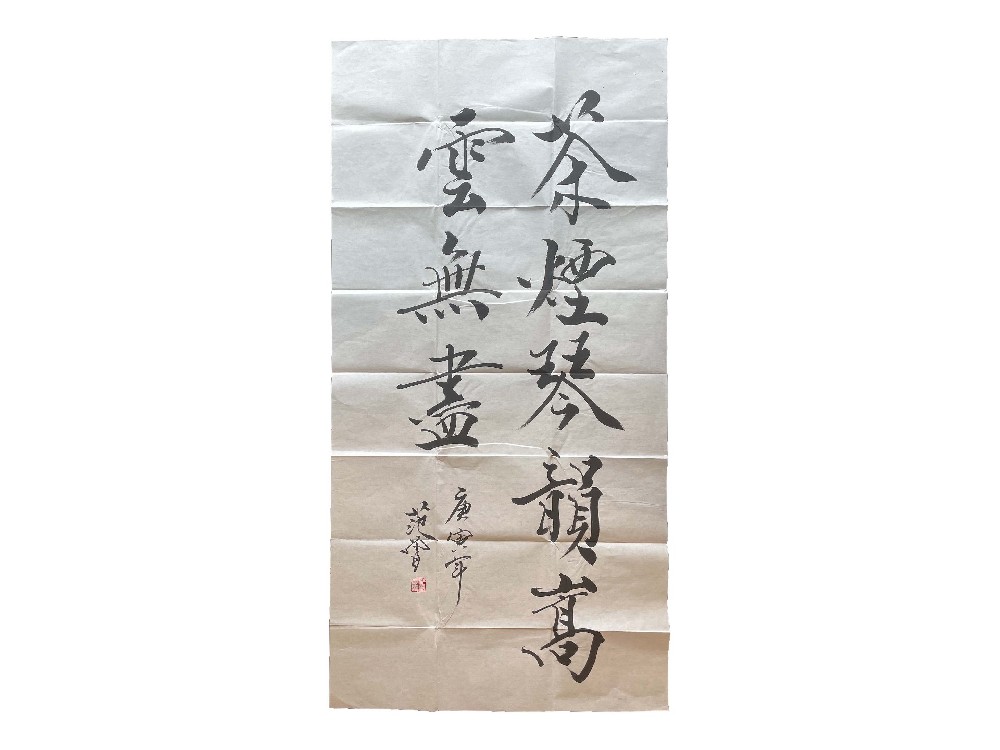 茶煙琴韻高
雲無盡
庚寅年
范曾